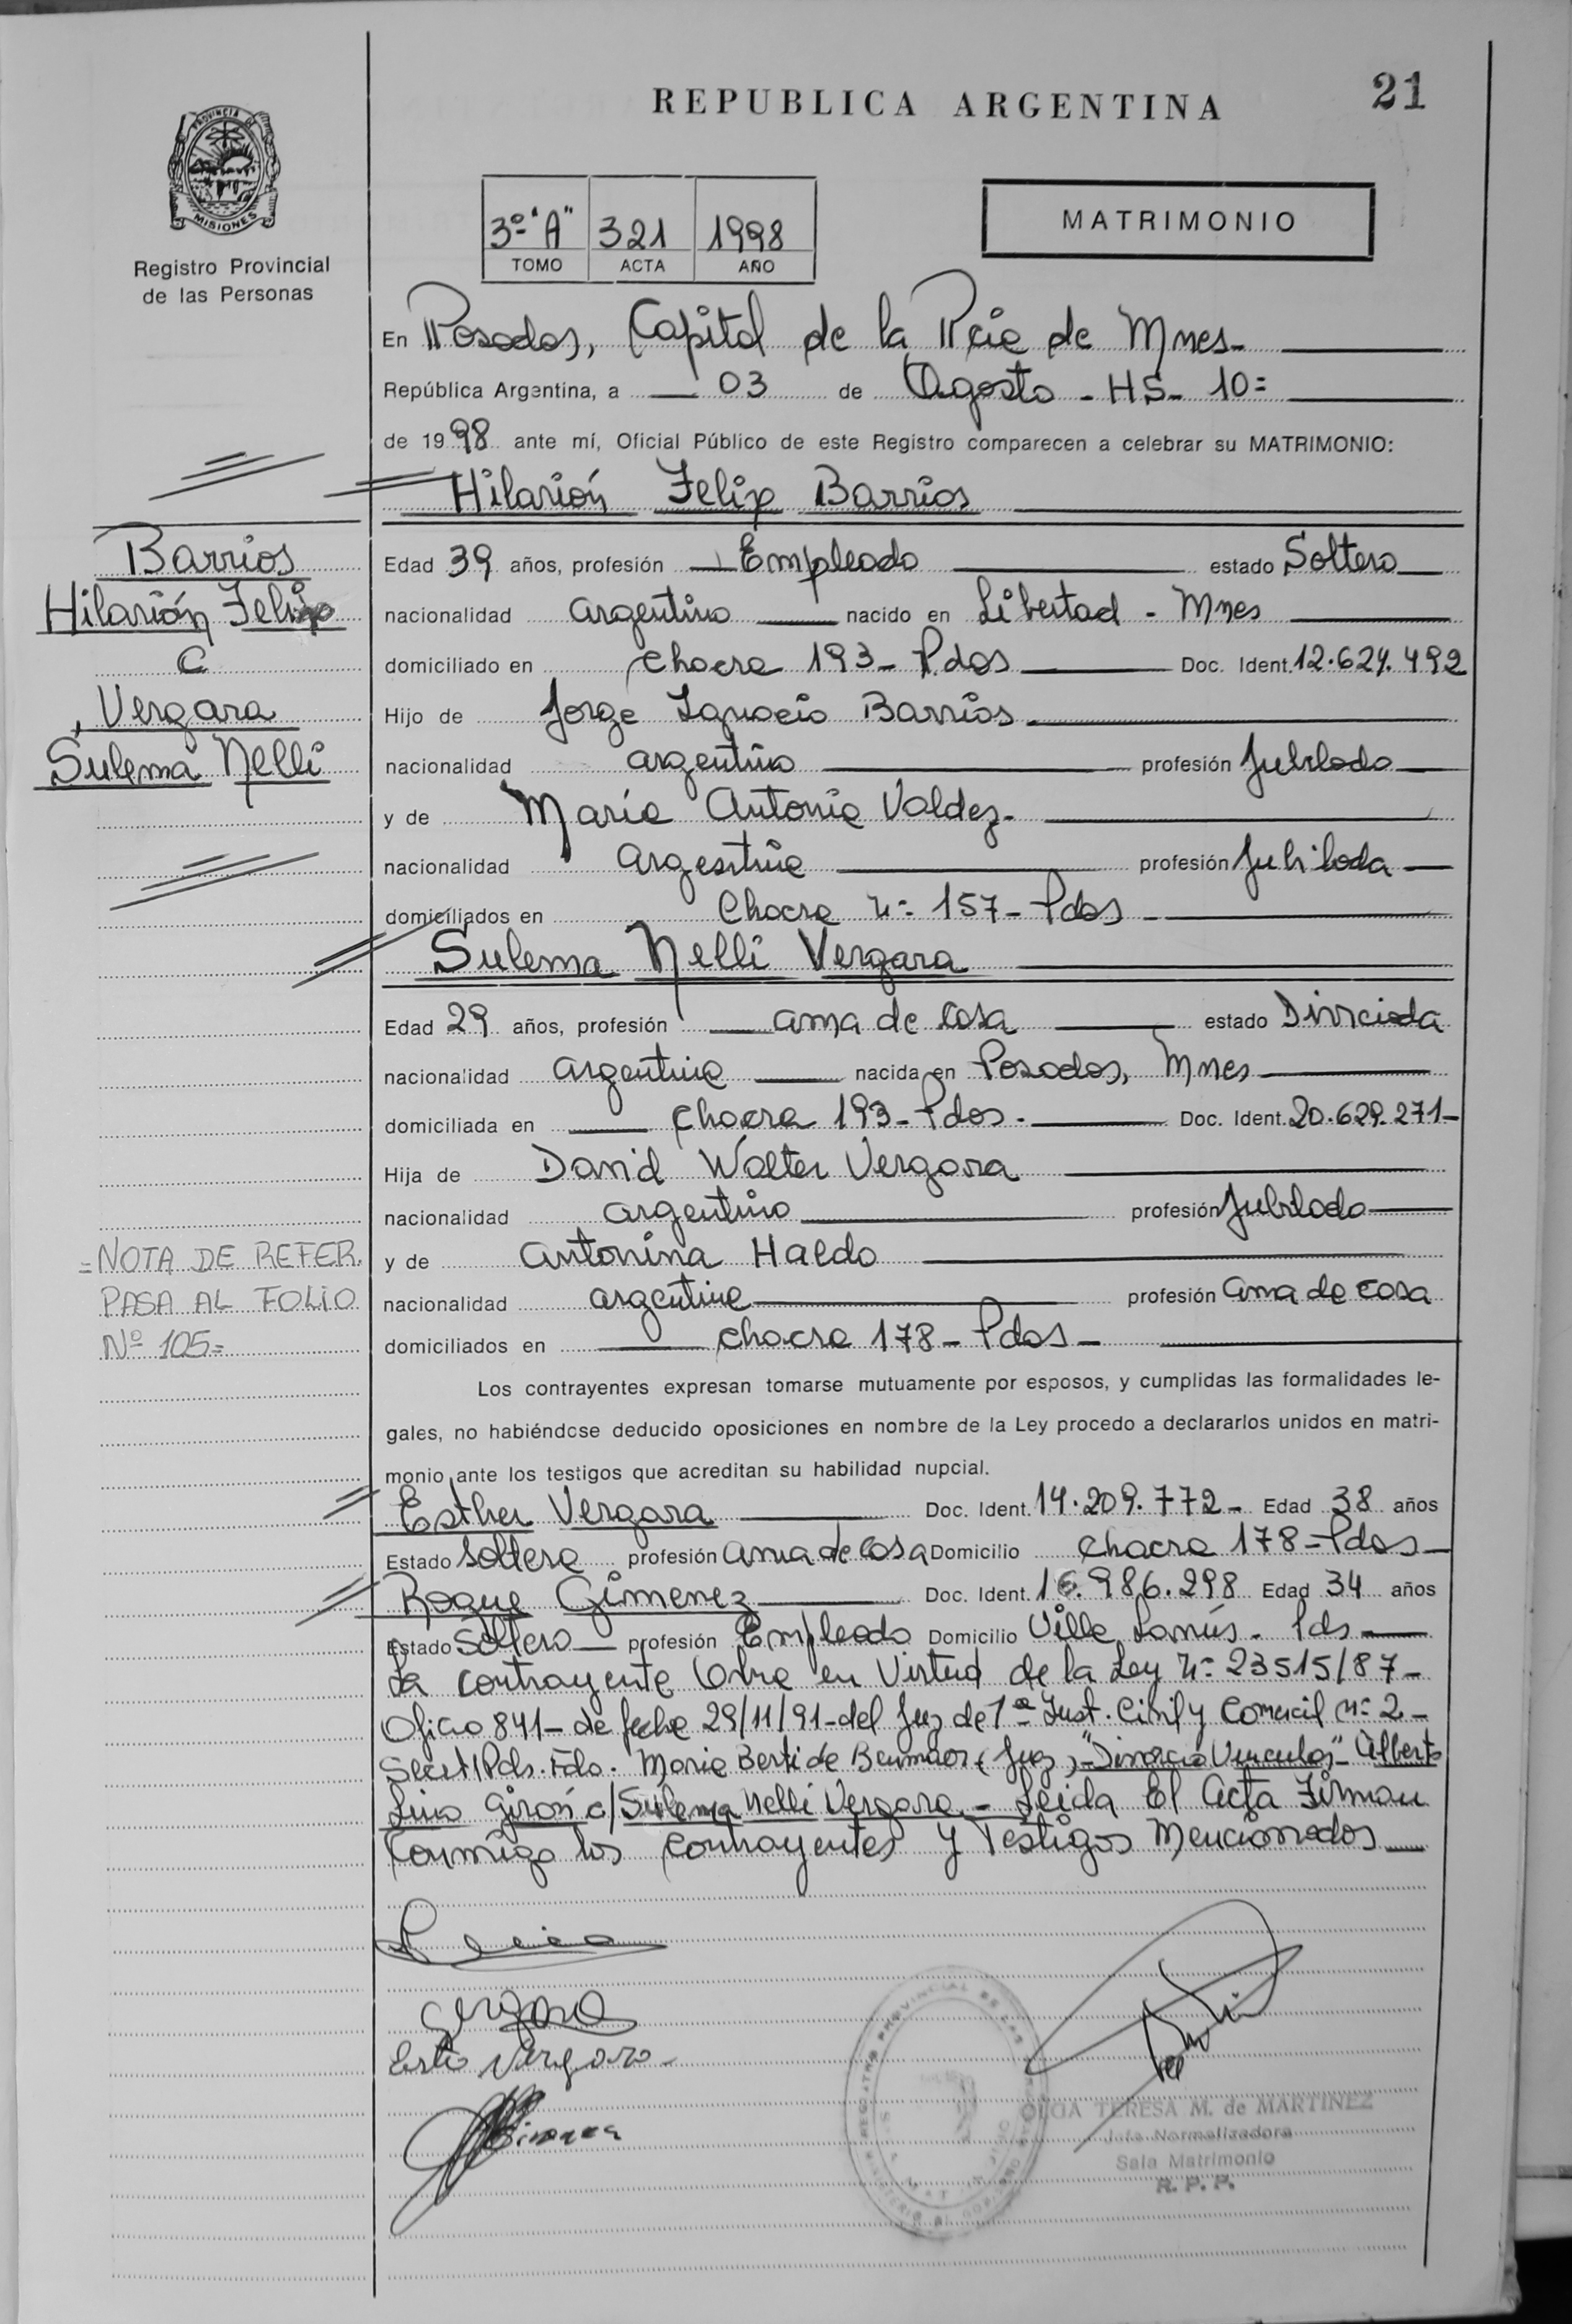 REPUBLICA ARGENTINA
21
PROVINCIA DE
MISIONES
Registro Provincial
de las Personas
3º "A" 321 1998
TOMO ACTA AÑO
MATRIMONIO
En Posadas, Capital de la Pcia de Mnes-
República Argentina, a 03 de Agosto - HS- 10=
de 1998 ante mí, Oficial Público de este Registro comparecen a celebrar su MATRIMONIO:
Hilarión Felix Barrios
Barrios
Hilarión Felix
C
Vergara
Sulema Nelli
Edad 39 años, profesión Empleado estado Soltero
nacionalidad argentino nacido en Libertad - Mnes
domiciliado en chacra 193- Pdas Doc. Ident. 12.624.492
Hijo de Jorge Ignacio Barrios
nacionalidad argentino profesión Jubilado
y de María Antonia Valdez-
nacionalidad argentina profesión Jubilada
domiciliados en Chacra nº 157- Pdas
Sulema Nelli Vergara
Edad 29 años, profesión ama de casa estado Divrciada
nacionalidad argentina nacida en Posadas, Mnes
domiciliada en chacra 193- Pdas- Doc. Ident. 20.629.271-
Hija de David Walter Vergara
nacionalidad argentino profesión Jubilado
y de antonina Haedo
nacionalidad argentina profesión ama de casa
domiciliados en chacra 178- Pdas-
=NOTA DE REFER.
PASA AL FOLIO
Nº 105=
Los contrayentes expresan tomarse mutuamente por esposos, y cumplidas las formalidades le-
gales, no habiéndose deducido oposiciones en nombre de la Ley procedo a declararlos unidos en matri-
monio ante los testigos que acreditan su habilidad nupcial.
Esther Vergara Doc. Ident. 14.209.772- Edad 38 años
Estado soltera profesión ama de casa Domicilio chacra 178-Pdas-
Roque Gimenez Doc. Ident. 16.986.298 Edad 34 años
Estado Soltero profesión Empleado Domicilio Villa Lanús- Pds
La contrayente Obra en Virtud de la Ley nº 23515/87-
Oficio 841- de fecha 29/11/91-del Juz de 1ª Inst. Civil y Comercial nº 2-
Secret 1 Pds. Fdo. Maria Berti de (Juz)-"Divorcio Vincular"- Alberto
Lino Girón c/Sulema Nelli Vergara- Leida El Acta Firman
Conmigo los contrayentes y Testigos Mencionados
Vergara
OLGA TERESA M. de MARTINEZ
Jefa Normalizadora
Sala Matrimonio
R. P. P.